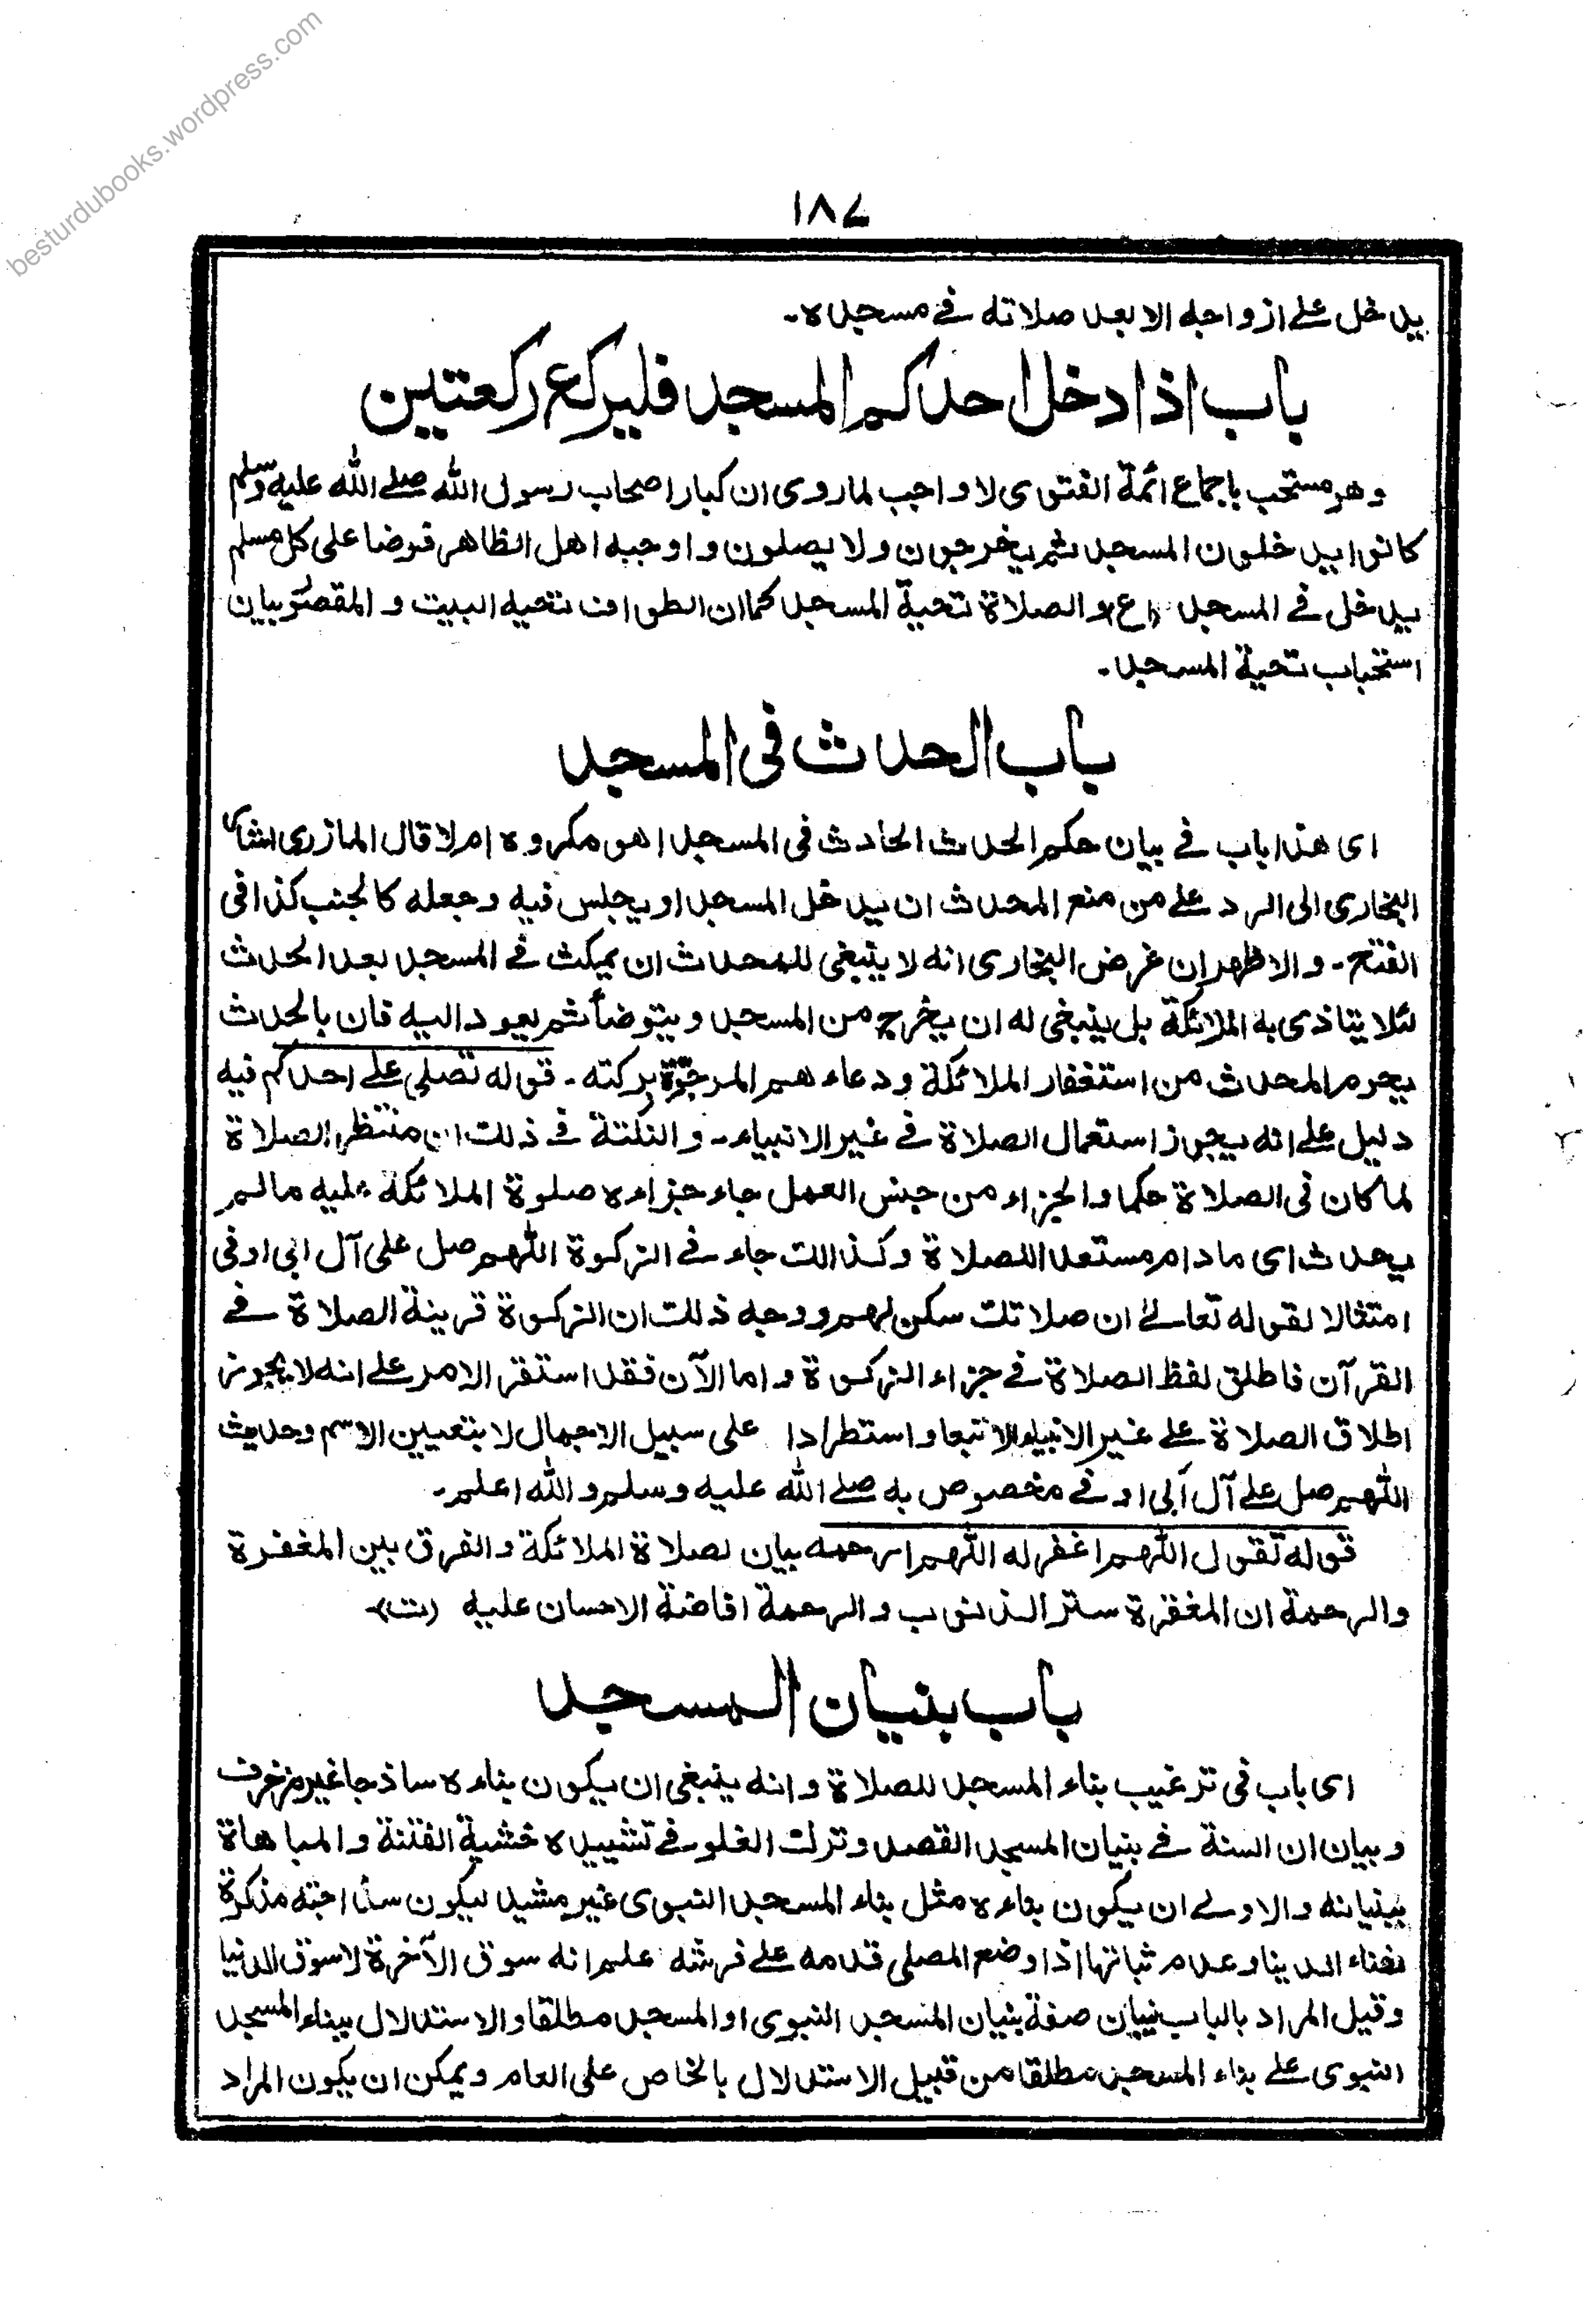 besturdubooks.wordpress.com
١٨٧
يدخل علے ازواجه الا بعد صلاته فے مسجده۔
باب اذا دخل احدكم المسجد فليركع ركعتين
وهو مستحب باجماع ائمة الفتوى لا واجب لما روى ان كبار اصحاب رسول الله صلے الله عليه وسلم
كانوا يدخلون المسجد ثم يخرجون ولا يصلون واوجبه اهل الظاهر فرضا على كل مسلم
يدخل فے المسجد (ع) والصلاة تحية المسجد كما ان الطواف تحية البيت و المقصود بيان
استحباب تحية المسجد۔
باب الحدث فى المسجد
اى هذا باب فے بيان حكم الحدث الحادث فى المسجد اهو مكروه ام لا قال المازرى اشار
البخارى الى الرد علے من منع المحدث ان يدخل المسجد او يجلس فيه وجعله كالجنب كذا فى
الفتح۔ والاظهر ان غرض البخارى انه لا ينبغى للمحدث ان يمكث فے المسجد بعد الحدث
لئلا يتاذى به الملائكة بل ينبغى له ان يخرج من المسجد ويتوضأ ثم يعود اليه فان بالحدث
يحرم المحدث من استغفار الملائكة ودعاء هم المرجوّة بركته۔ قوله تصلى علے احدكم فيه
دليل علے انه يجوز استعمال الصلاة فے غير الانبياء۔ والنكتة فے ذلك ان منتظر الصلاة
لما كان فى الصلاة حكما والجزاء من جنس العمل جاء جزاءه صلوة الملائكة عليه مالم
يحدث اى مادام مستعدا للصلاة وكذالك جاء فے الزكوة اللهم صل على آل ابى اوفى
امتثالا لقوله تعالےٰ ان صلاتك سكن لهم ووجه ذلك ان الزكوة قرينة الصلاة فے
القرآن فاطلق لفظ الصلاة فے جزاء الزكوة واما الآن فقد استقر الامر علے انه لا يجوز
اطلاق الصلاة علے غير الانبياء الا تبعا واستطرادا على سبيل الاجمال لا بتعيين الاسم وحديث
اللهم صل علے آل ابى اوفے مخصوص به صلے الله عليه وسلم والله اعلم۔
قوله تقول اللهم اغفر له اللهم ارحمه بيان لصلاة الملائكة والفرق بين المغفرة
والرحمة ان المغفرة ستر الذنوب والرحمة افاضة الاحسان عليه (ت)۔
باب بنيان المسجد
اى باب فى ترغيب بناء المسجد للصلاة وانه ينبغى ان يكون بناءه ساذجا غير مزخرف
وبيان ان السنة فے بنيان المسجد القصد وترك الغلو فے تشييده خشية الفتنة والمباهاة
ببنيانه والاولے ان يكون بناءه مثل بناء المسجد النبوى غير مشيد ليكون سذاجته مذكرة
لفناء الدينا وعدم ثباتها اذا وضع المصلى قدمه علے فرشه علم انه سوق الآخرة لا سوق الدنيا
وقيل المراد بالباب بيان صفة بنيان المسجد النبوى او المسجد مطلقا والاستدلال ببناء المسجد
النبوى علے بناء المسجد مطلقا من قبيل الاستدلال بالخاص على العام ويمكن ان يكون المراد